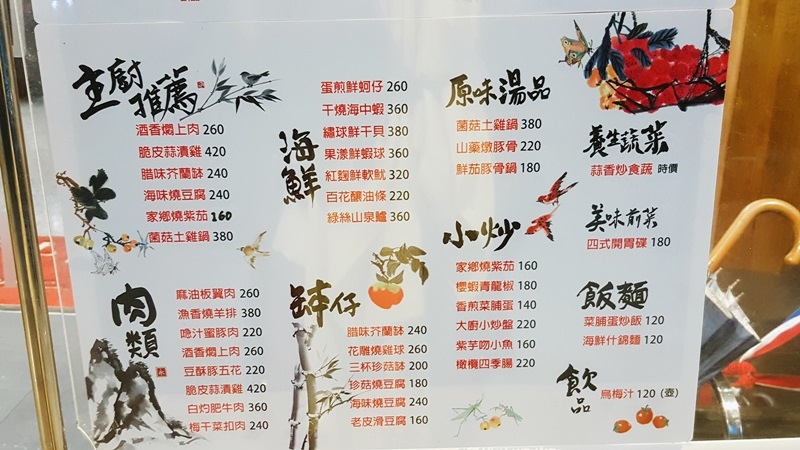 主廚推薦
酒香燜上肉 260
脆皮蒜漬雞 420
腊味芥蘭缽 240
海味燒豆腐 240
家鄉燒紫茄 160
菌菇土雞鍋 380
肉類
麻油板翼肉 260
漁香燒羊排 380
嗆汁蜜豚肉 220
酒香燜上肉 260
豆酥豚五花 220
脆皮蒜漬雞 420
白灼肥牛肉 360
梅干菜扣肉 240
海鮮
蛋煎鮮蚵仔 260
干燒海中蝦 360
繡球鮮干貝 380
果漾鮮蝦球 360
紅麴鮮軟魷 320
百花釀油條 220
綠絲山泉鱸 360
缽仔
腊味芥蘭缽 240
花雕燒雞球 260
三杯珍菇缽 200
珍菇燒豆腐 180
海味燒豆腐 240
老皮滑豆腐 160
原味湯品
菌菇土雞鍋 380
山藥燉豚骨 220
鮮茄豚骨鍋 180
小炒
家鄉燒紫茄 160
櫻蝦青龍椒 180
香煎菜脯蛋 140
大廚小炒盤 220
紫芋吻小魚 160
橄欖四季腸 220
養生蔬菜
蒜香炒食蔬 時價
美味前菜
四式開胃碟 180
飯麵
菜脯蛋炒飯 120
海鮮什錦麵 120
飲品
烏梅汁 120 (壺)